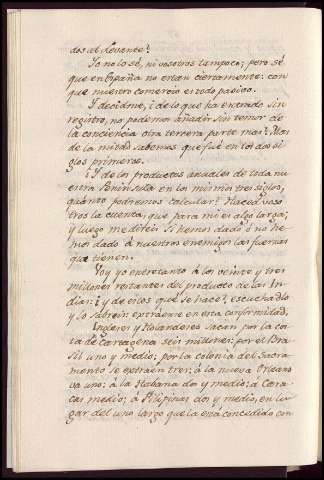 dos al Levante?
Yo no lo sé, ni vosotros tampoco; pero sé
que en España no estan ciertamente: con
que nuestro comercio es todo pasivo.
Y decidme, ¿de lo que ha entrado sin
registro, no podemos añadir sin temor de
la conciencia otra tercera parte mas? Mas
de la mitad sabemos que fué en los dos si
glos primeros.
¿Y de los productos anuales de toda nu
estra Peninsula en los mismos tres siglos,
quánto podremos calcular? Haced voso
tros la cuenta, que para mi es algo larga;
y luego meditese si hemos dado ó no he
mos dado á nuestros enemigos las fuerzas
que tienen.
Voy yo entretanto á los veinte y tres
millones restantes del producto de las In
dias: ¿y de estos que se hace?, escuchadlo
y lo sabreis: extráense en esta conformidad.
Ingleses y Holandeses sacan por la cos
ta de Cartagena seis millones: por el Bra
sil uno y medio: por la colonia del Sacra
mento se extraen tres: á la nueva Orleans
va uno: á la Habana dos y medio: á Cara
cas medio: á Filipinas dos y medio, en lu
gar del uno largo que la está concedido con